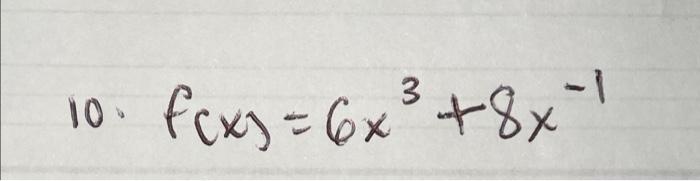 10. f(x) = 6x³ + 8x⁻¹